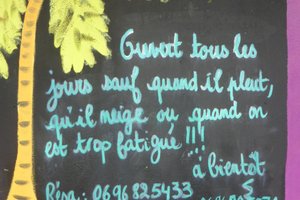 Ouvert tous les
jours sauf quand il pleut,
qu'il neige ou quand on
est trop fatigué !!!
à bientôt
Résa.: 0696825433